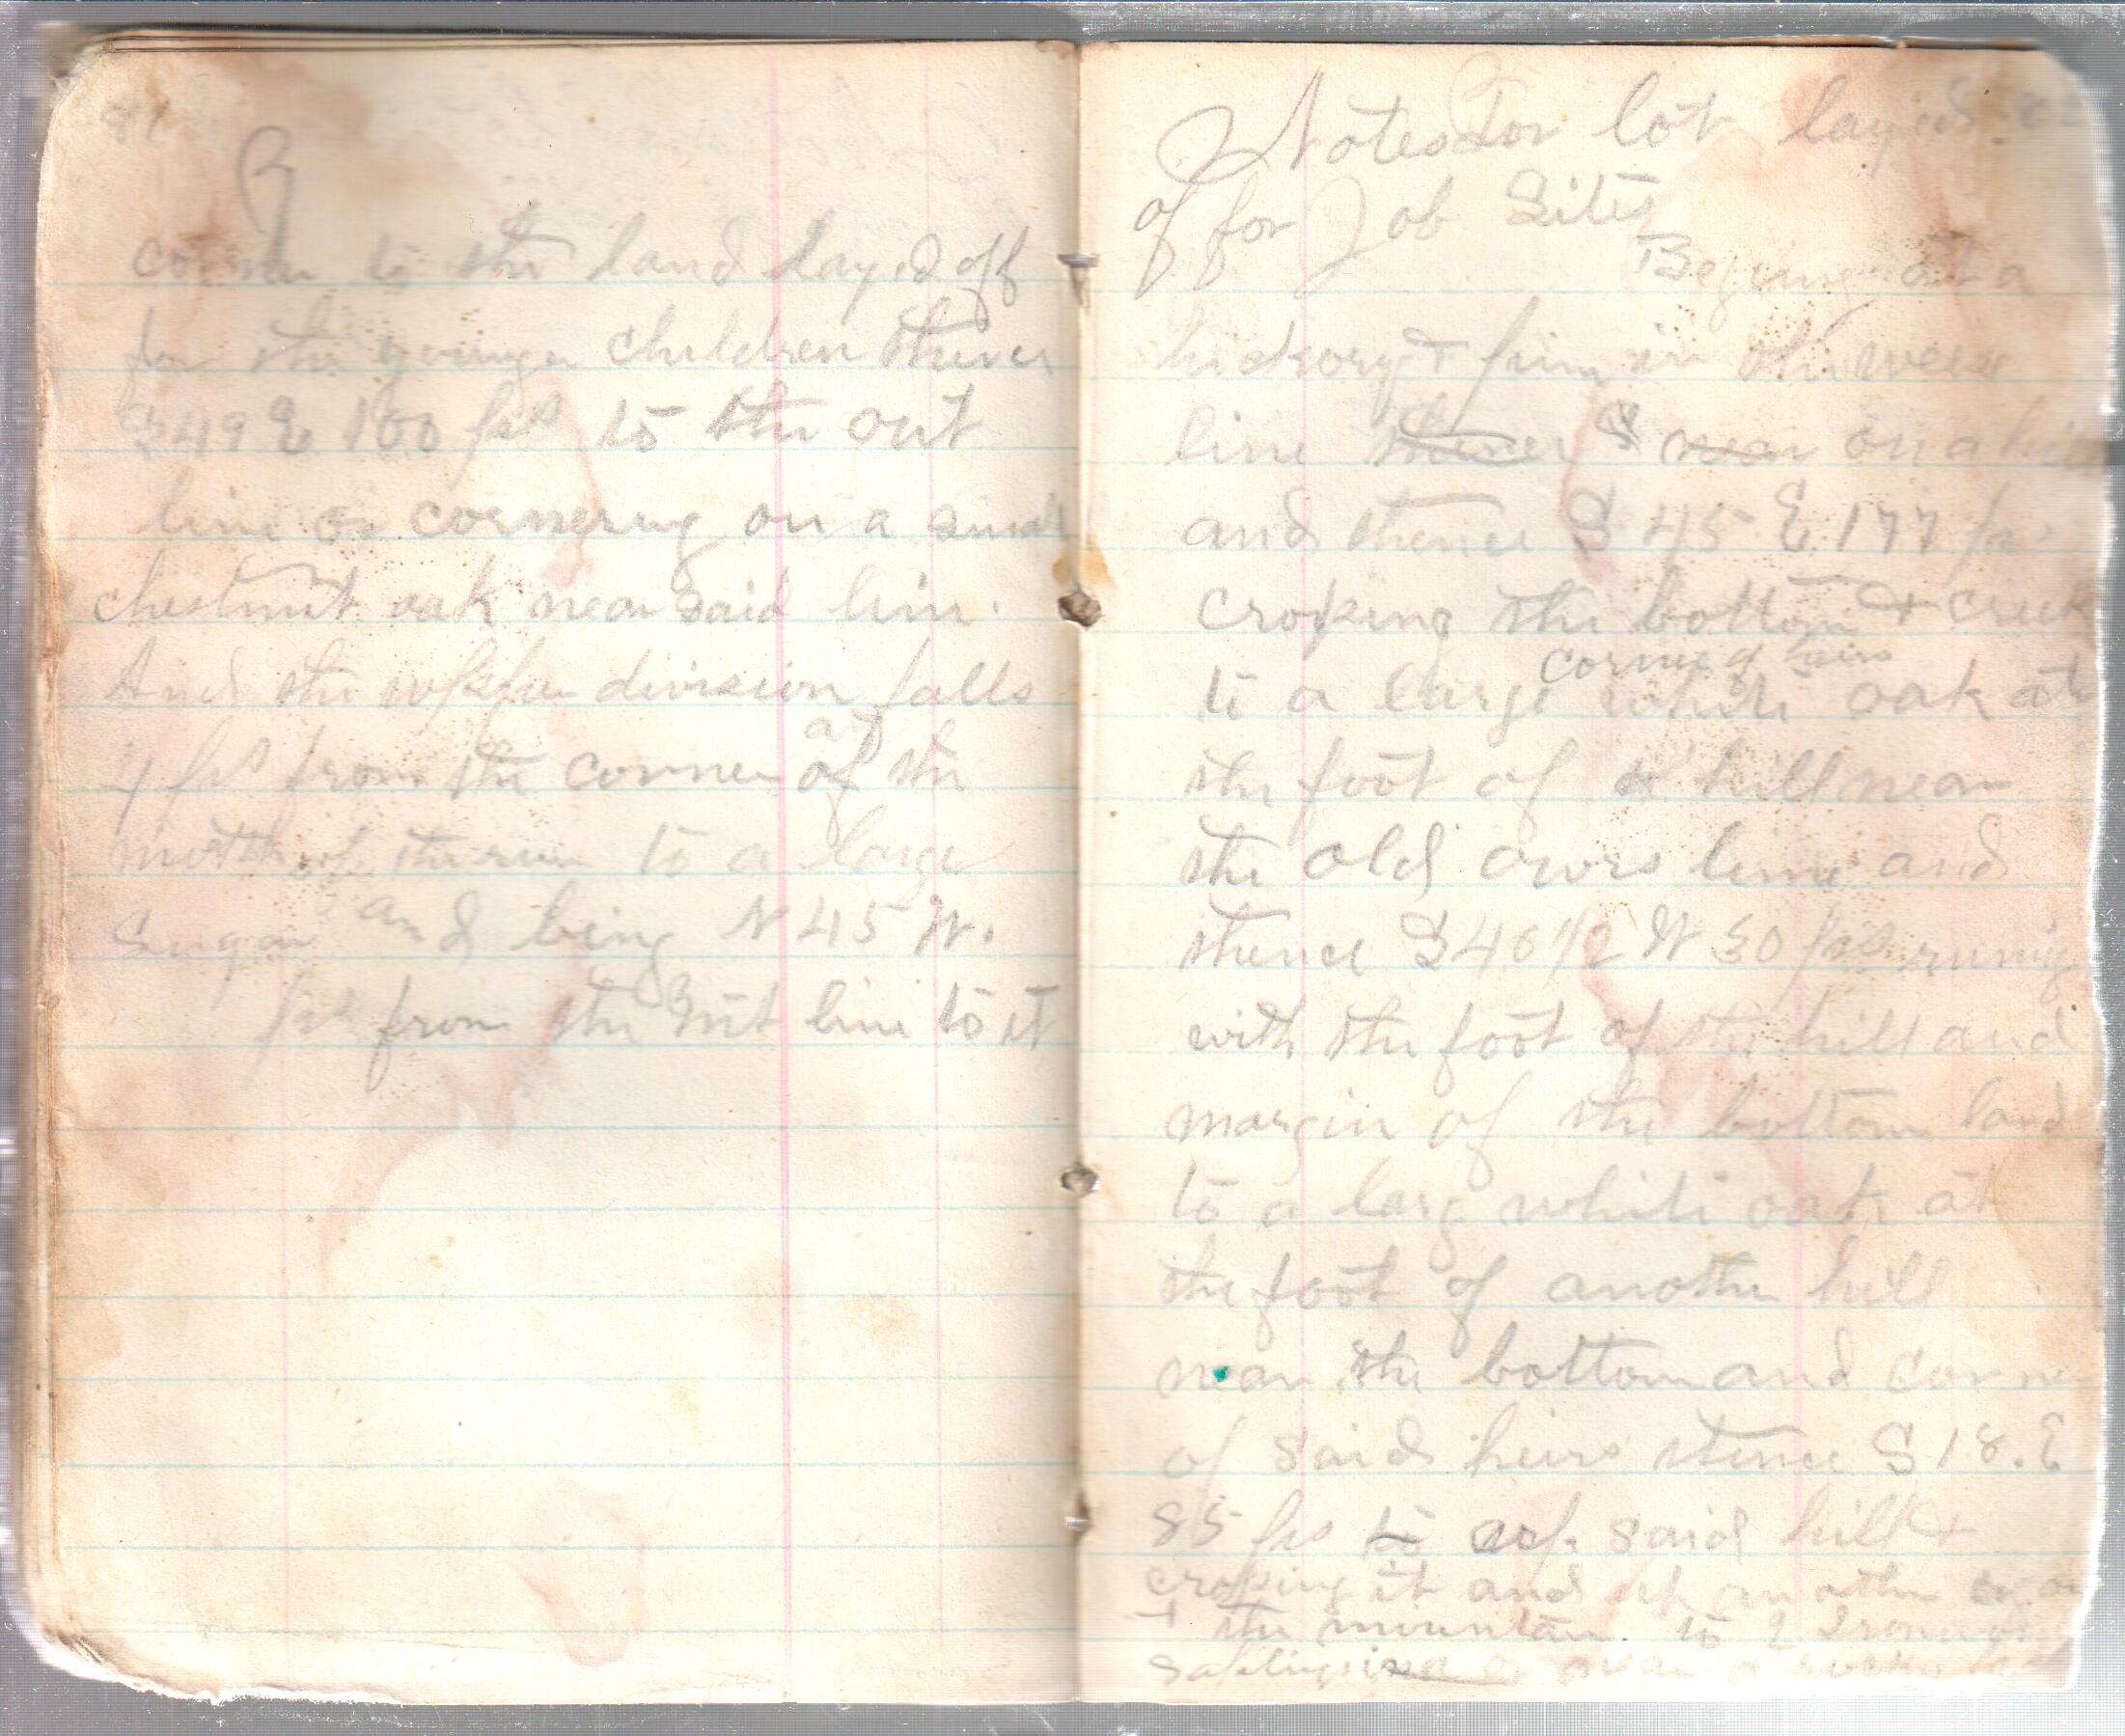 81
corner to the land layed off
for the younger children thence
S 49 E 100 ps to the out
line or cornering on a small
chestnut oak near said line.
And the upper division falls
4 ps from the corner of at the
mouth of the run to a large
Sugar and being N 45 W.
ps from the out line to it
Notes for lot layed
of for Job Sites
Begining at a
hickory & in the west
line thence S near on a
and thence S 45 E 177 ps
croping the bottom & creek
corner of heirs
to a large white oak at
the foot of a hill near
the old ours line and
thence S 46 1/2 W 30 ps runing
with the foot of the hill and
margin of the bottom land
to a larg white oak at
the foot of another hill
near the bottom and corner
of said heirs thence S 18. E
85 ps to up said hill &
croping it and up an other
& the mountain to 2 Ironwood
saplings in a